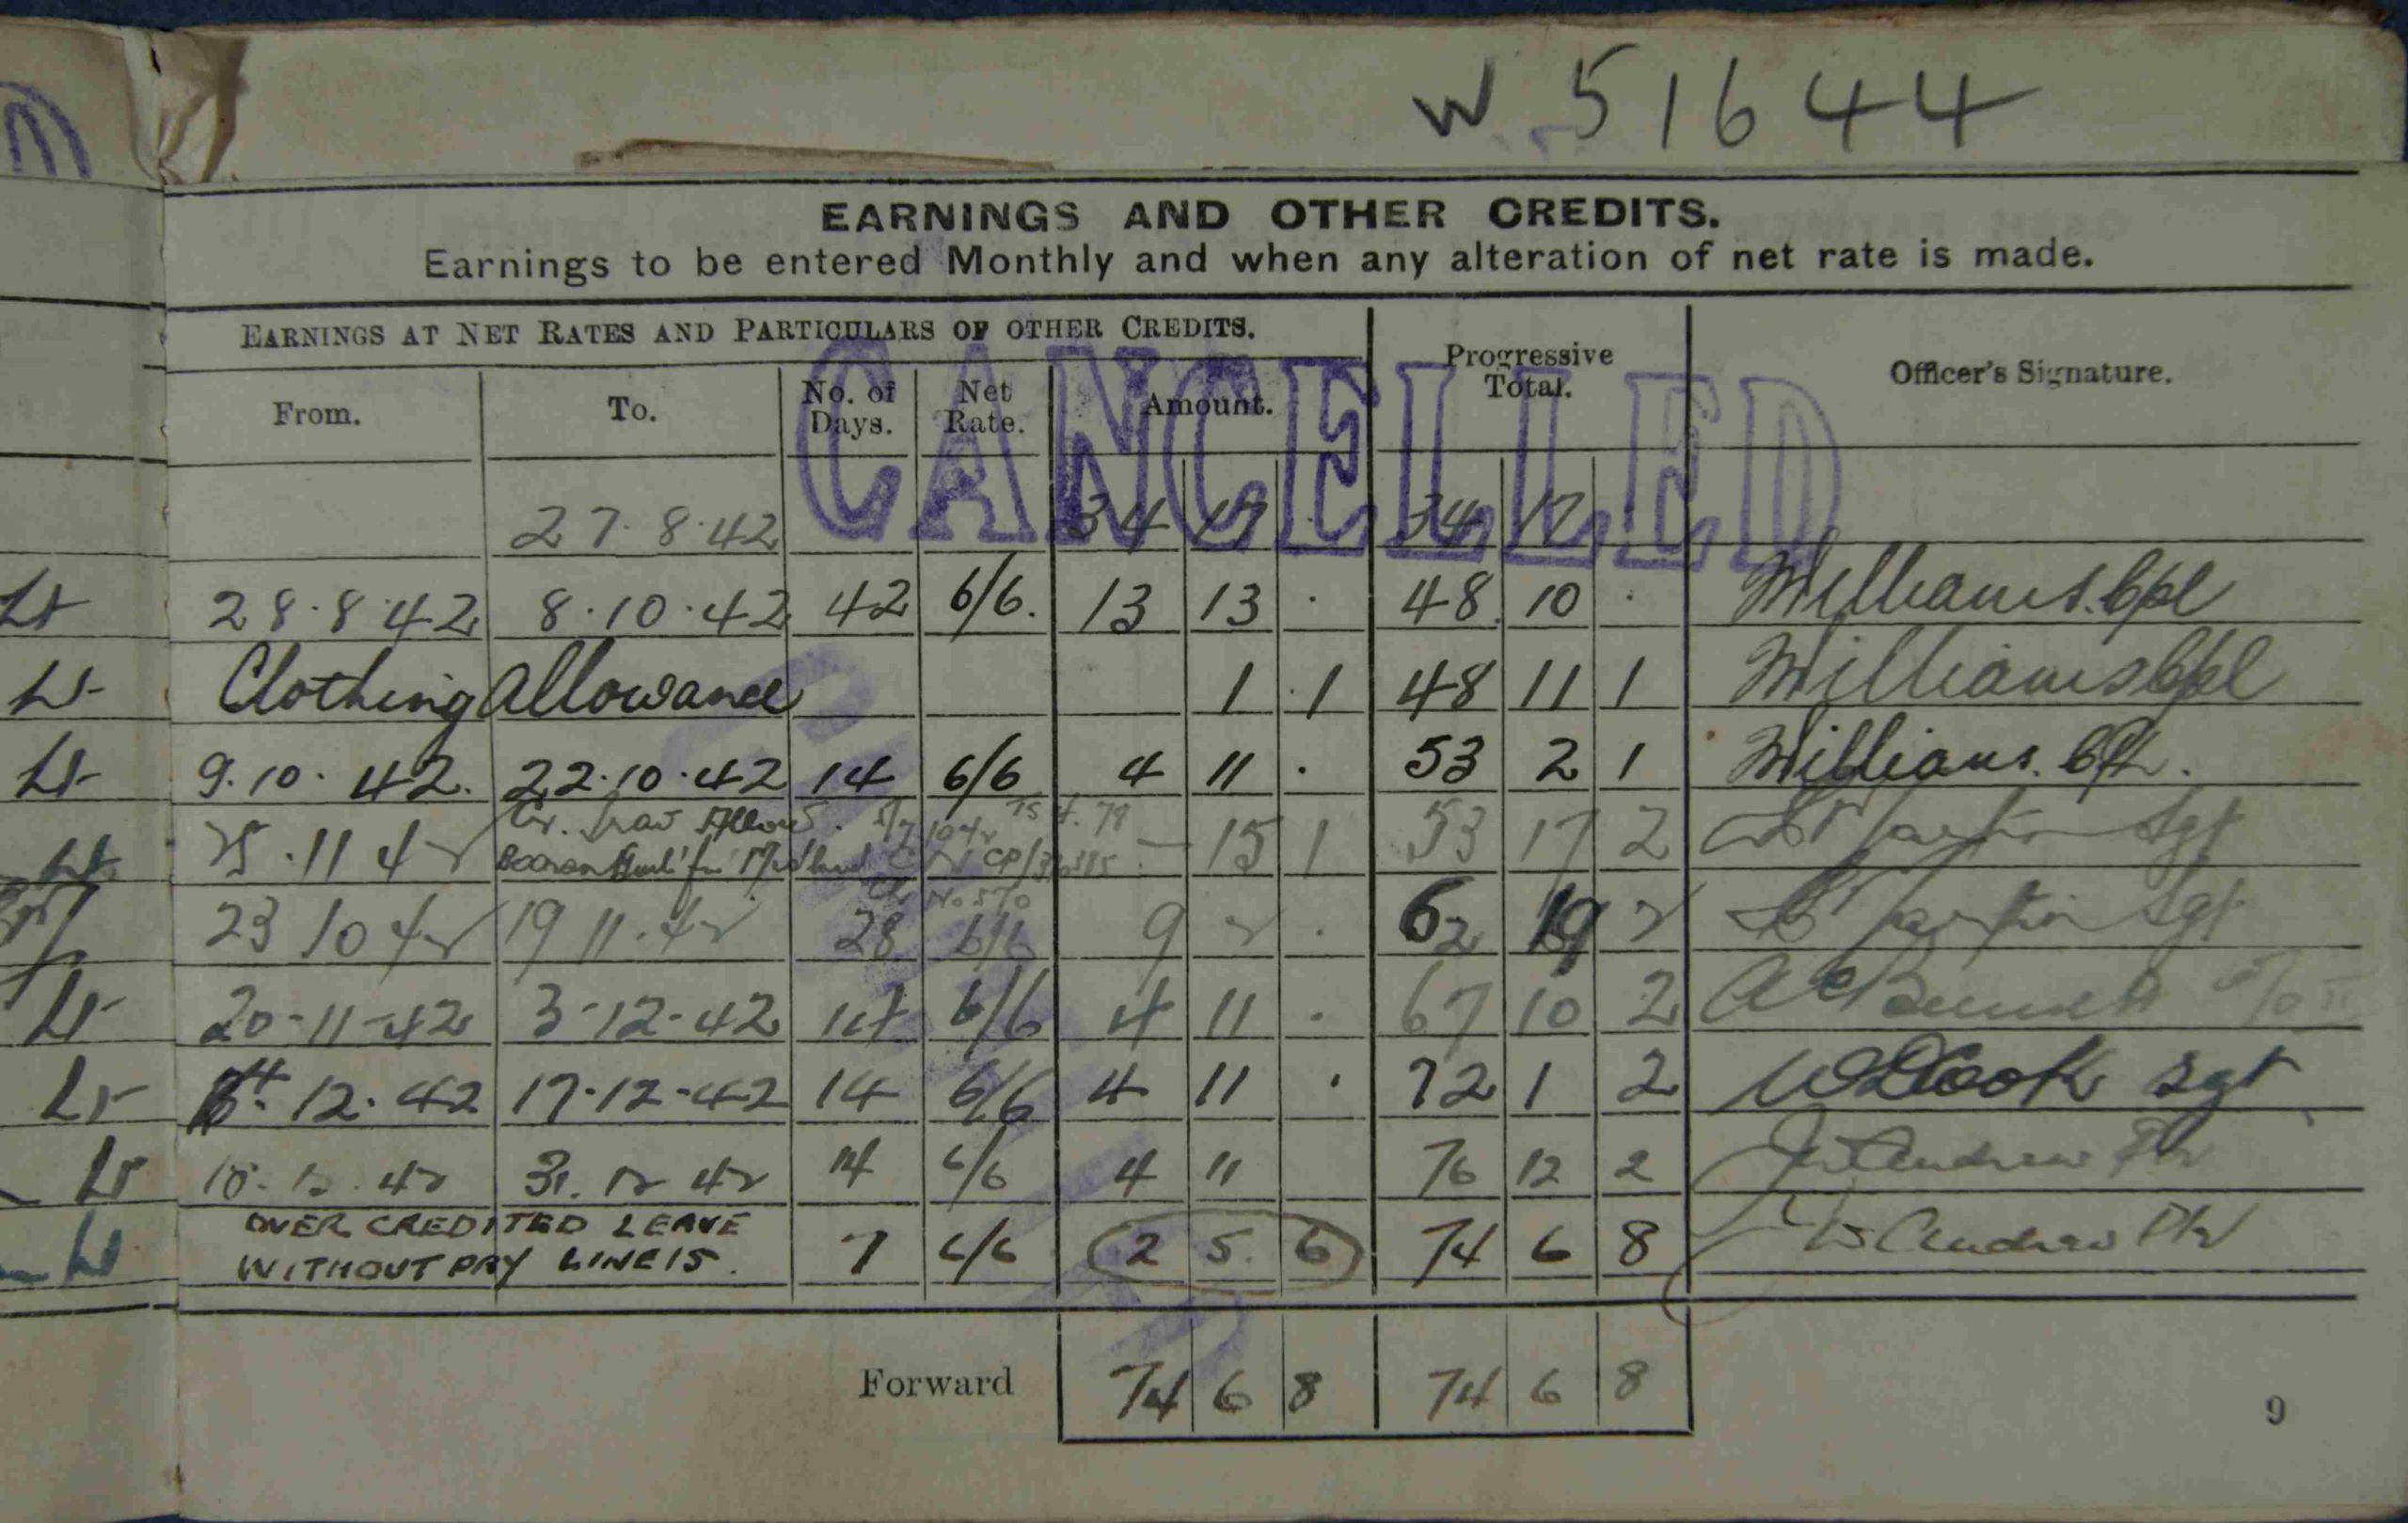 W 51644
EARNINGS AND OTHER CREDITS.
Earnings to be entered Monthly and when any alteration of net rate is made.
EARNINGS AT NET RATES AND PARTICULARS OF OTHER CREDITS.
Progressive Total.
Officer's Signature.
From. To. No. of Days. Net Rate. Amount.
CANCELLED
27.8.42 34 17 . 34 17 .
28.8.42 8.10.42 42 6/6. 13 13 . 48 10 . Williams. Cpl
Clothing Allowance 1 . 1 48 11 1 Williams Cpl
9.10.42. 22.10.42 14 6/6 4 11 . 53 2 1 Williams. Cpl.
25.11 42 Allow - 15 1 53 17 2 Sgt
23 10 42 19 11.42 28 6/6 9 2 . 62 19 2 Sgt
20-11-42 3-12-42 14 6/6 4 11 . 67 10 2
4.12.42 17-12-42 14 6/6 4 11 . 72 1 2 Cook Sgt
18.12.42 31.12 42 14 6/6 4 11 76 12 2 Andrew Pte
OVER CREDITED LEAVE
WITHOUT PAY LINE 15. 7 6/6 2 5. 6 74 6 8 Andrew Pte
Forward 74 6 8 74 6 8
9